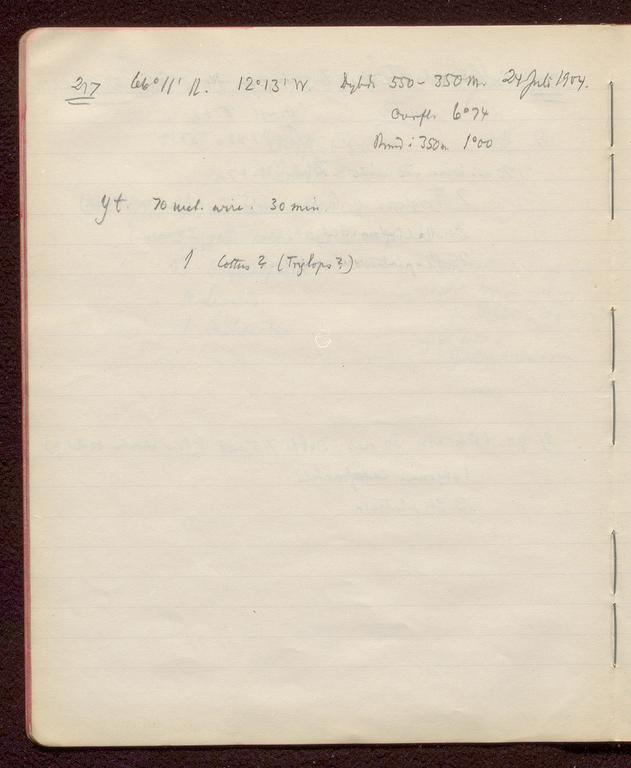 217 66°11' N. 12°13' W. Dybde 550-350 m. 24 Juli 1904.
Overfl. 6°74
Bund i 350 m 1°00
yt 70 met. wire. 30 min.
1 Cottus? (Triglops?)